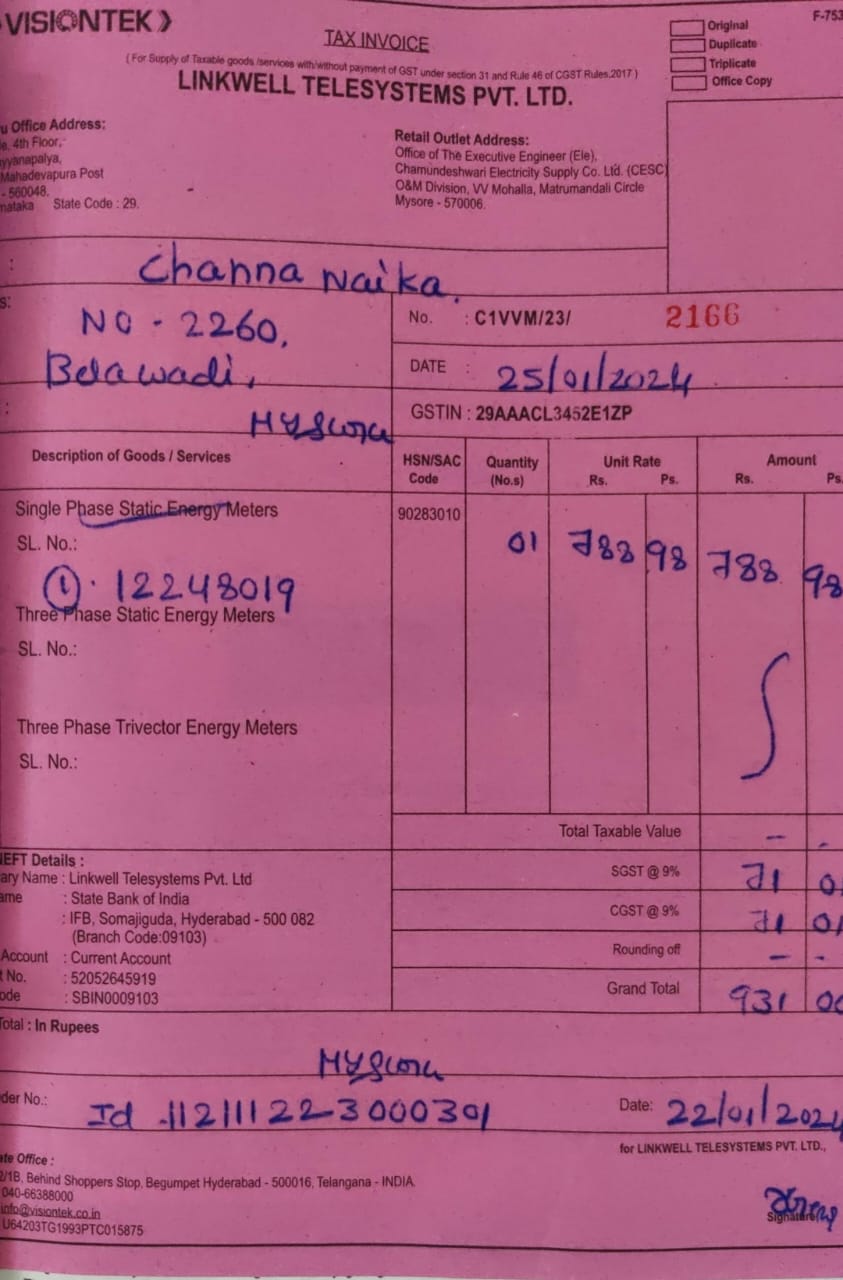 VISIONTEK
F-753
TAX INVOICE
(For Supply of Taxable goods /services with/without payment of GST under section 31 and Rule 46 of CGST Rules,2017)
LINKWELL TELESYSTEMS PVT. LTD.
Original
Duplicate
Triplicate
Office Copy
u Office Address:
e, 4th Floor,
yyanapalya,
Mahadevapura Post
- 560048.
nataka State Code : 29.
Retail Outlet Address:
Office of The Executive Engineer (Ele),
Chamundeshwari Electricity Supply Co. Ltd. (CESC)
O&M Division, VV Mohalla, Matrumandali Circle
Mysore - 570006.
: Channa Naika.
s: NO - 2260,
Belawadi,
No. : C1VVM/23/ 2166
DATE : 25/01/2024
GSTIN : 29AAACL3452E1ZP
Description of Goods / Services HSN/SAC Code Quantity (No.s) Unit Rate Rs. Ps. Amount Rs. Ps.
Single Phase Static Energy Meters 90283010
SL. No.: 01 788 98 788 98
① . 12248019
Three Phase Static Energy Meters
SL. No.:
Three Phase Trivector Energy Meters
SL. No.:
Total Taxable Value - -
SGST @ 9% 71 0
CGST @ 9% 71 01
Rounding off - -
Grand Total 931 00
EFT Details :
ary Name : Linkwell Telesystems Pvt. Ltd
ame : State Bank of India
: IFB, Somajiguda, Hyderabad - 500 082
(Branch Code:09103)
Account : Current Account
t No. : 52052645919
ode : SBIN0009103
Total : In Rupees
der No.: Id 1121112230000301
Date: 22/01/2024
for LINKWELL TELESYSTEMS PVT. LTD.,
ate Office :
2/1B, Behind Shoppers Stop, Begumpet Hyderabad - 500016, Telangana - INDIA.
040-66388000
info@visiontek.co.in
U64203TG1993PTC015875
Signature